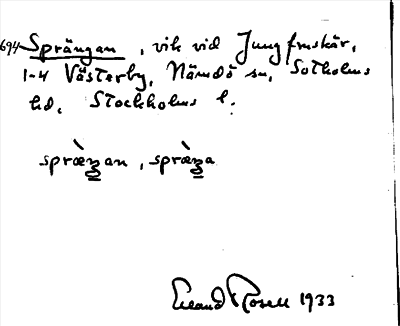 694 Sprängan, vik vid Jungfruskär,
1-4 Västerby, Nämdö sn, Sotholms
hd, Stockholms l.
spræ̀ꞑan, spræ̀ꞑa
Erland Rosell 1933